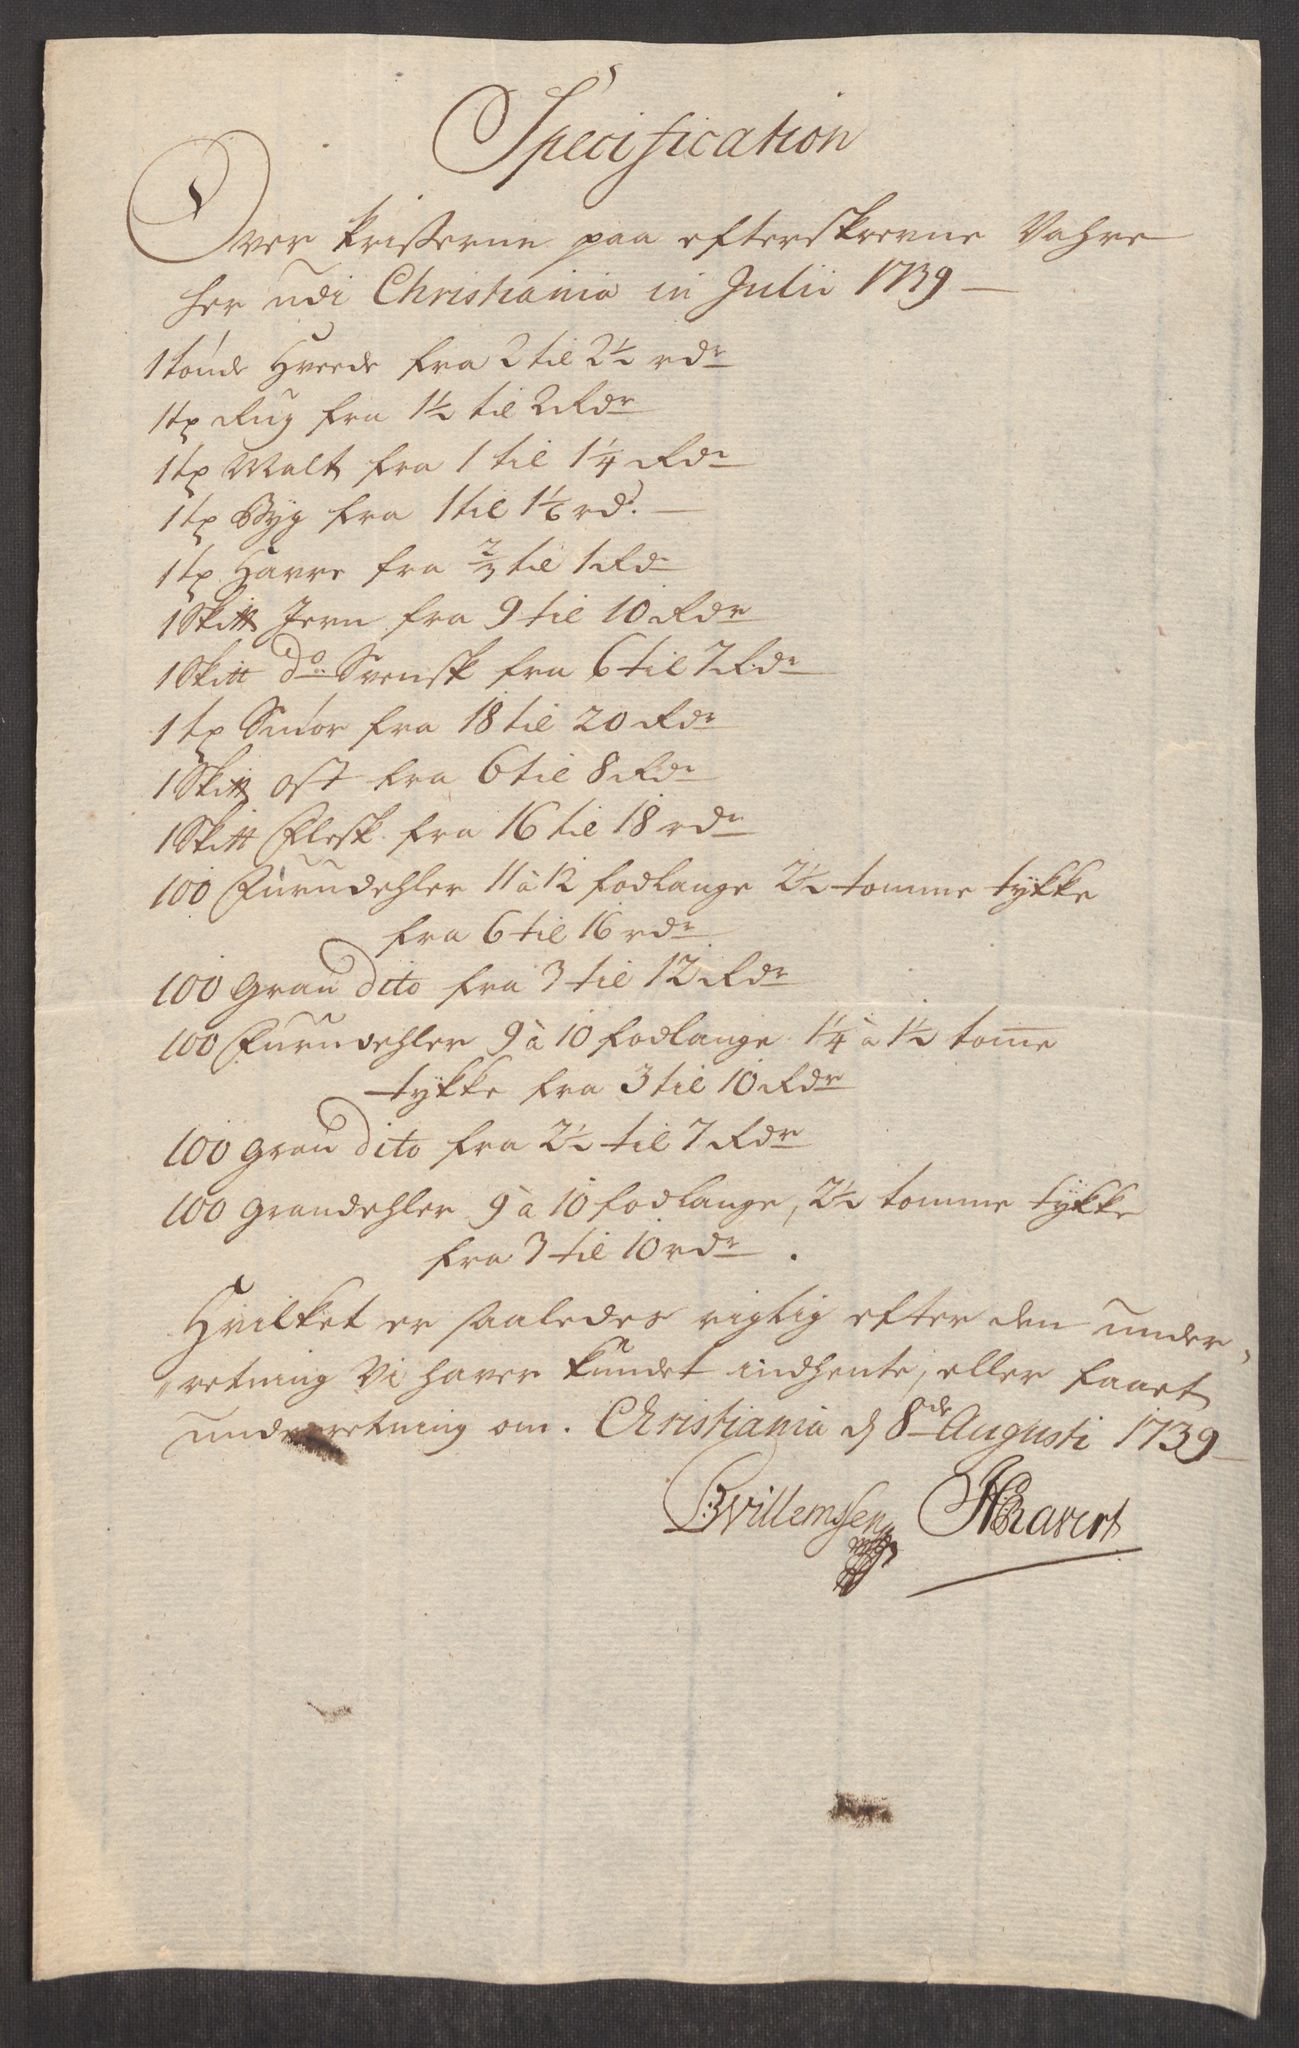 Specification
Over Prisserne paa efterskrevne Vahre
her udi Christiania in Julii 1739
1 tönde Hvede fra 2 til 2½ rdr
1 tp Rug fra 1½ til 2 Rdr
1 tp Malt fra 1 til 1¼ Rdr
1 tp Byg fra 1 til 1⅙ rdr.
1 tp Havre fra ⅔ til 1 Rdr
1 Skitt Jern fra 9 til 10 Rdr
1 Skitt do Svensk fra 6 til 7 Rdr
1 tp Smör fra 18 til 20 Rdr
1 Skitt Ost fra 6 til 8 Rdr
1 Skitt Flesk fra 16 til 18 rdr
100 Furudehler 11 à 12 fodlange 2½ tomme tykke
fra 6 til 16 rdr
100 Gran dito fra 3 til 12 Rdr
100 Furudehler 9 à 10 fodlange 1¼ à 1½ tome
tykke fra 3 til 10 Rdr
100 Gran dito fra 2½ til 7 Rdr
100 Grandehler 9 à 10 fodlange, 2½ tomme tykke
fra 3 til 10 rdr.
Hvilket er saaledes rigtig efter den under-
retning Vi haver kundet indhente, eller faaet
underretning om. Christiania d 8de Augusti 1739
BWillemssen HRavert